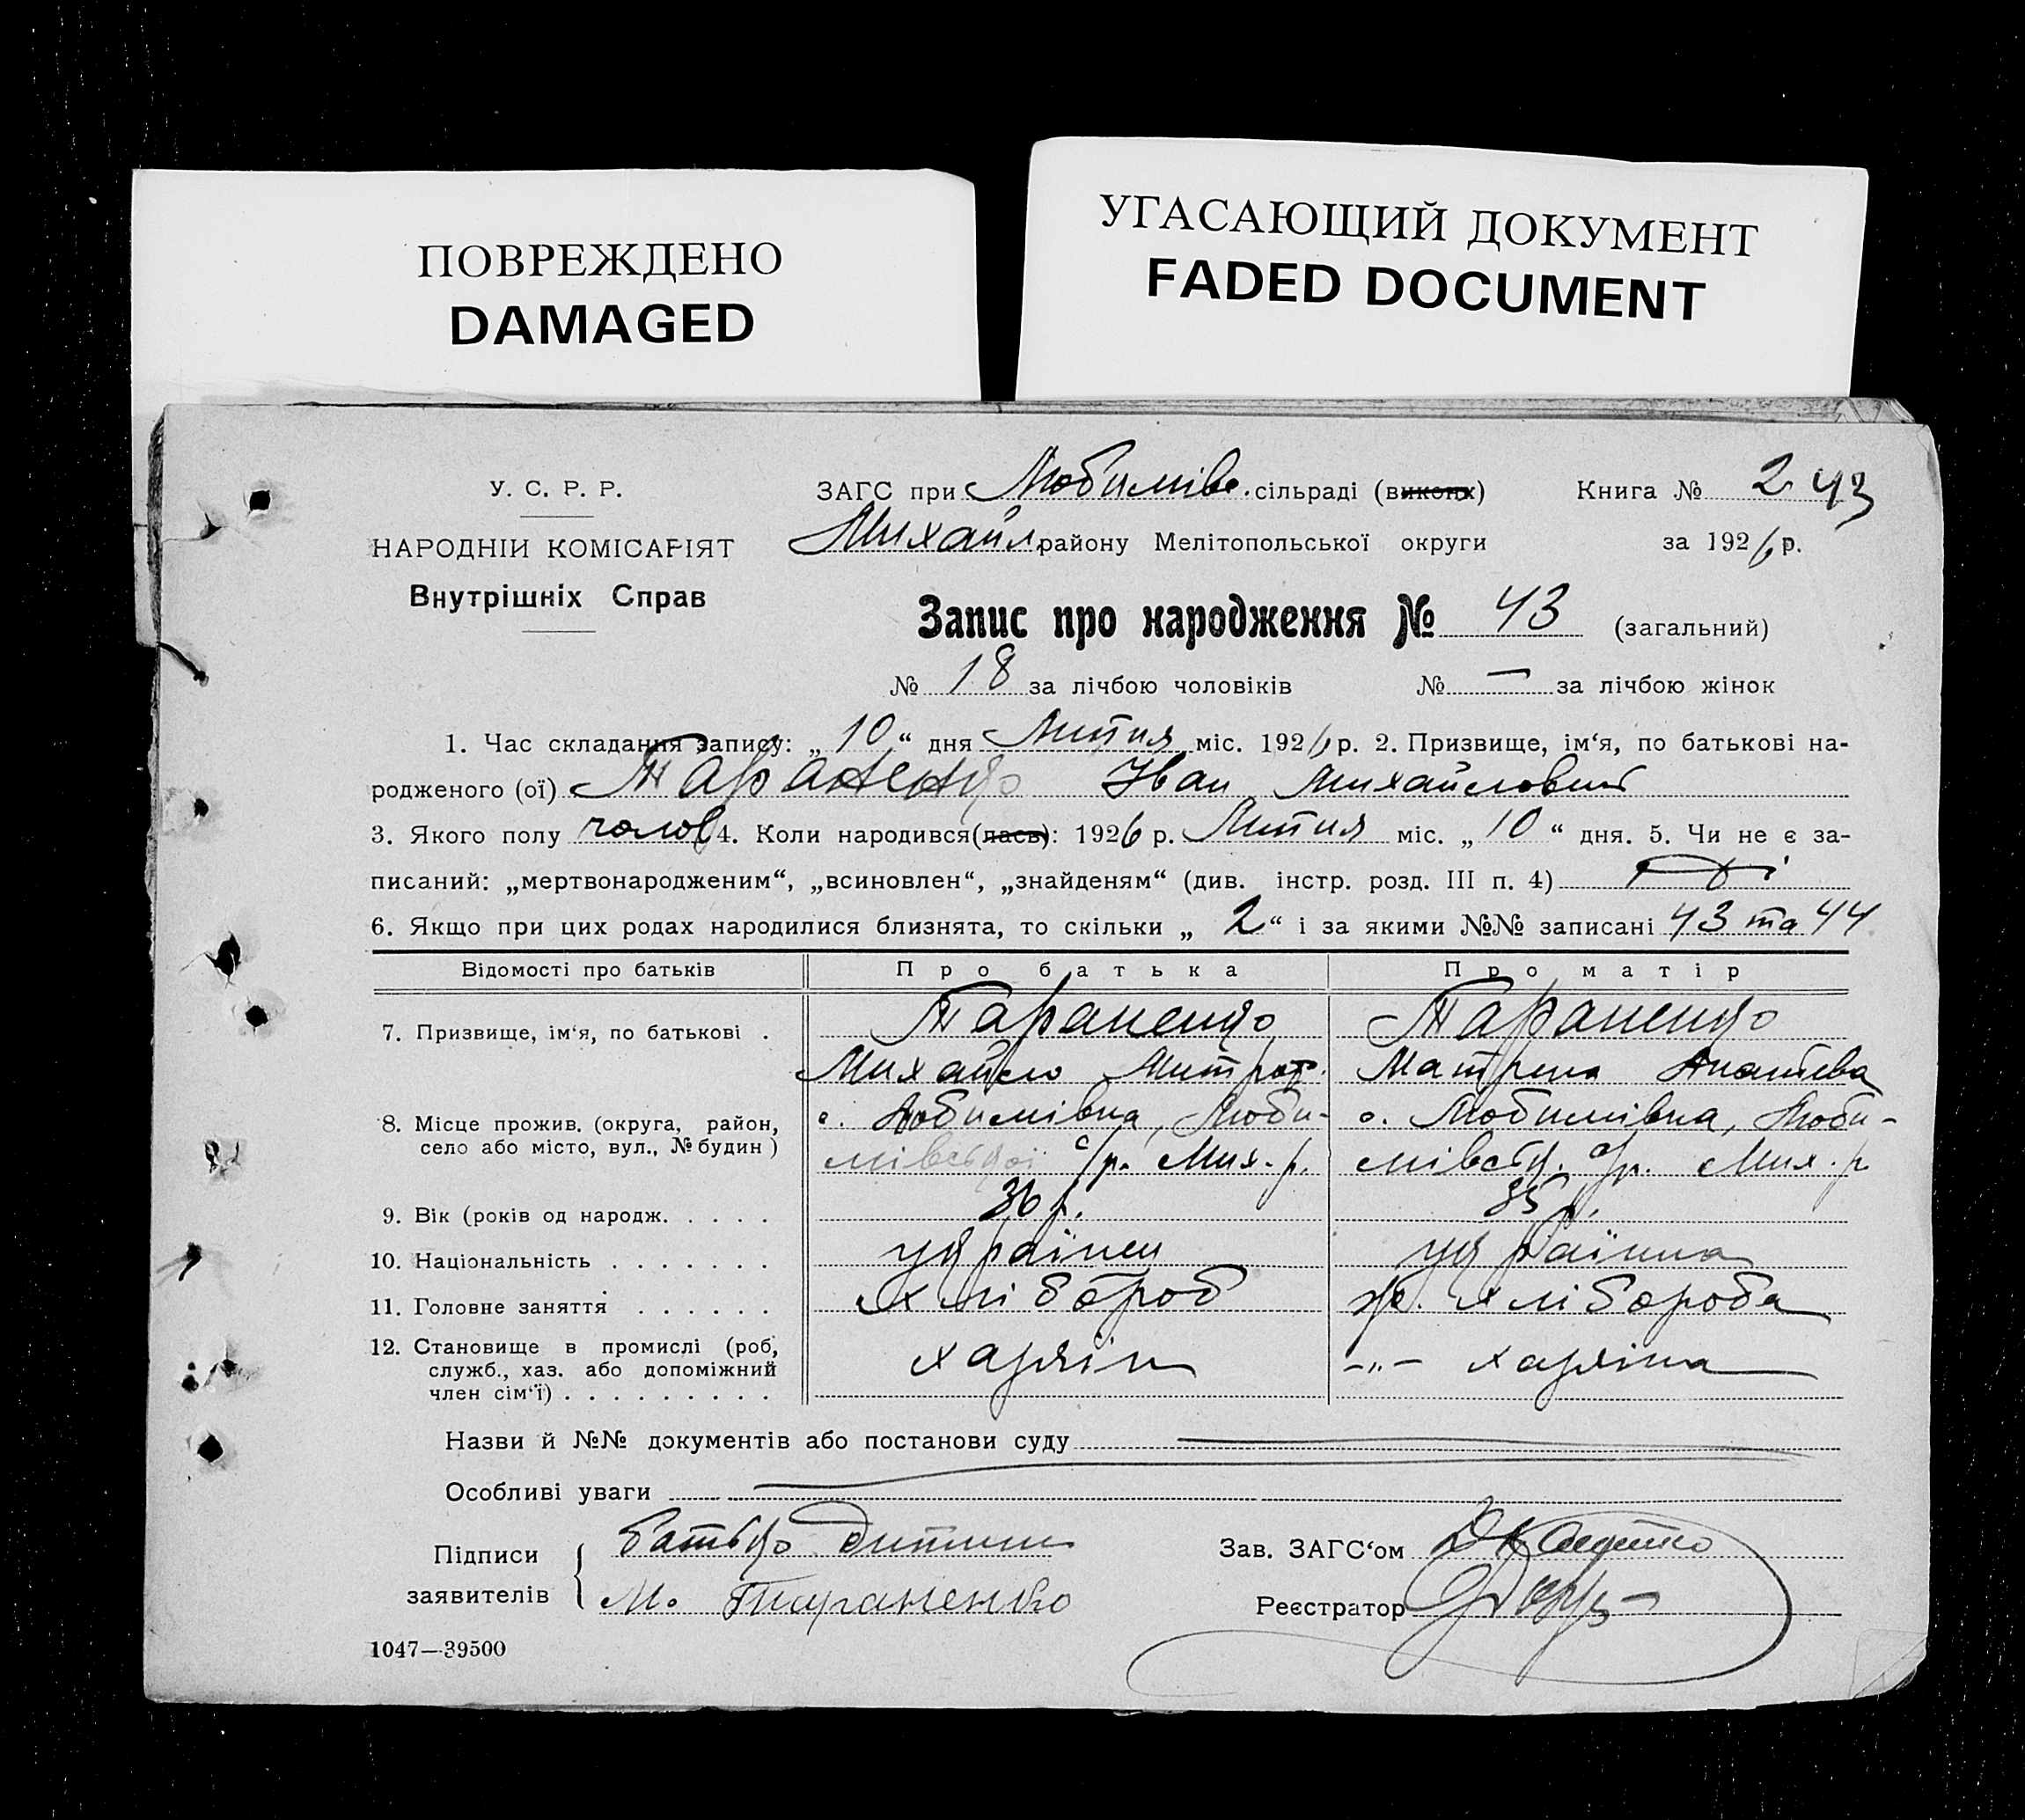 ПОВРЕЖДЕНО
DAMAGED
УГАСАЮЩИЙ ДОКУМЕНТ
FADED DOCUMENT
У. С. Р. Р.
НАРОДНІЙ КОМІСАРІЯТ
Внутрішніх Справ
ЗАГС при Любимівс. сільраді (виконк) Книга № 2 43
Михайл. району Мелітопольської округи за 1926 р.
Запис про народження № 43 (загальний)
№ 18 за лічбою чоловіків № — за лічбою жінок
1. Час складання запису: „ 10 “ дня Липня міс. 1926 р. 2. Призвище, ім‘я, по батькові на-
родженого (ої) Тараненко Іван Михайлович
3. Якого полу чолов 4. Коли народився(лась): 1926 р. Липня міс. „ 10 “ дня. 5. Чи не є за-
писаний: „мертвонародженим“, „всиновлен“, „знайденям“ (див. інстр. розд. III п. 4)
6. Якщо при цих родах народилися близнята, то скільки „ 2 “ і за якими №№ записані 43 та 44
Відомості про батьків Про батька Про матір
7. Призвище, ім‘я, по батькові . Тараненко Тараненко
Михайло Митроф. Матрена
8. Місце прожив. (округа, район, с. Любимівка, Люби- с. Любимівка, Люби-
село або місто, вул., № будин ) мівської с/р. Мих. р. мівськ. с/р. Мих. р
9. Вік (років од народж. . . . . 36 р. 35 р.
10. Національність . . . . . . . українец українка
11. Головне заняття . . . . . . хлібороб ж. хлібороба
12. Становище в промислі (роб, хазяїн -„- хазяїна
служб., хаз. або допоміжний
член сім‘ї) . . . . . . . . .
Назви й №№ документів або постанови суду
Особливі уваги
Підписи заявителів батько дитини
М. Тараненко
Зав. ЗАГС‘ом
Реєстратор
1047—39500